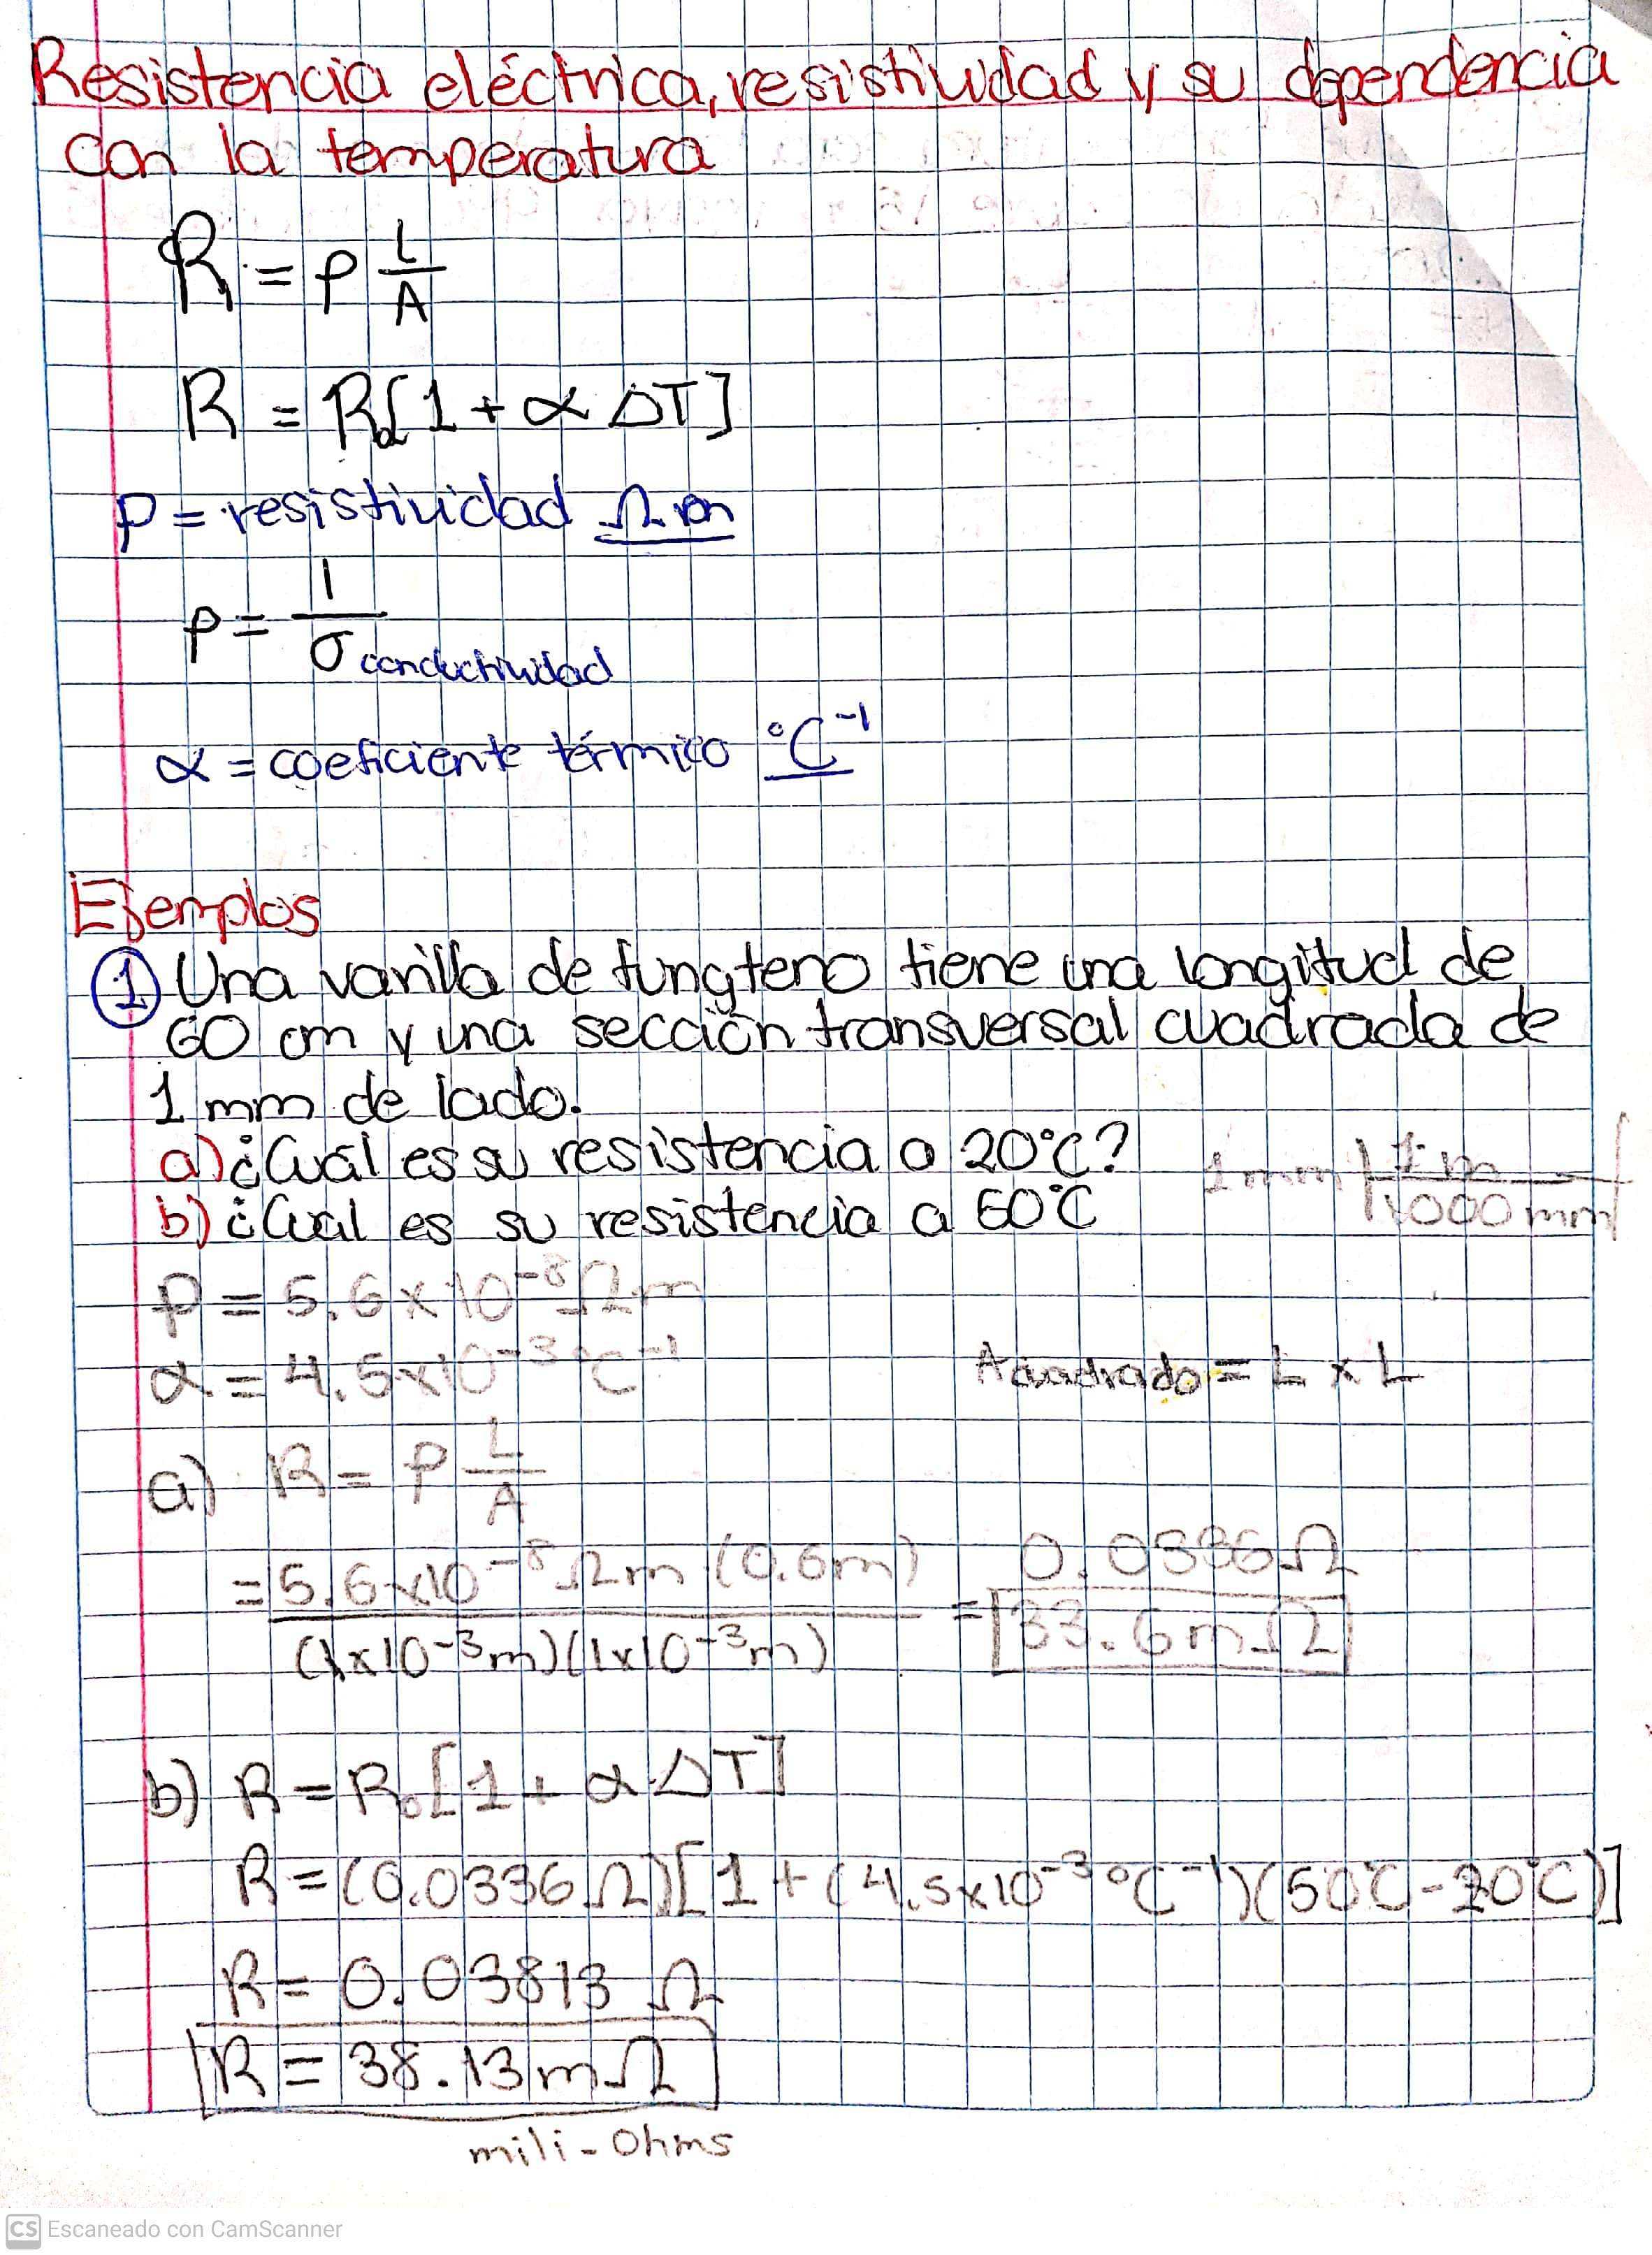 Resistencia eléctrica, resistividad y su dependencia
con la temperatura
R = ρ L/A
R = R₀[1 + α ΔT]
ρ = resistividad Ω m
ρ = 1/σ conductividad
α = coeficiente térmico °C⁻¹
Ejemplos
① Una varilla de tungteno tiene una longitud de
60 cm y una sección transversal cuadrada de
1 mm de lado.
a) ¿Cuál es su resistencia a 20°C?
1 mm | 1 m / 1000 mm |
b) ¿Cual es su resistencia a 50°C
ρ = 5.6 x 10⁻⁸ Ωm
α = 4.5x10⁻³ °C⁻¹
Acuadrado = L x L
a) R = ρ L/A
= 5.6x10⁻⁸ Ωm (0.6m) / (1x10⁻³m)(1x10⁻³m) = 0.0336Ω
33.6mΩ
b) R = R₀[1 + α ΔT]
R = (0.0336 Ω)[1 + (4.5x10⁻³ °C⁻¹)(50°C - 20°C)]
R = 0.03813 Ω
R = 38.13mΩ
mili-Ohms
CS Escaneado con CamScanner